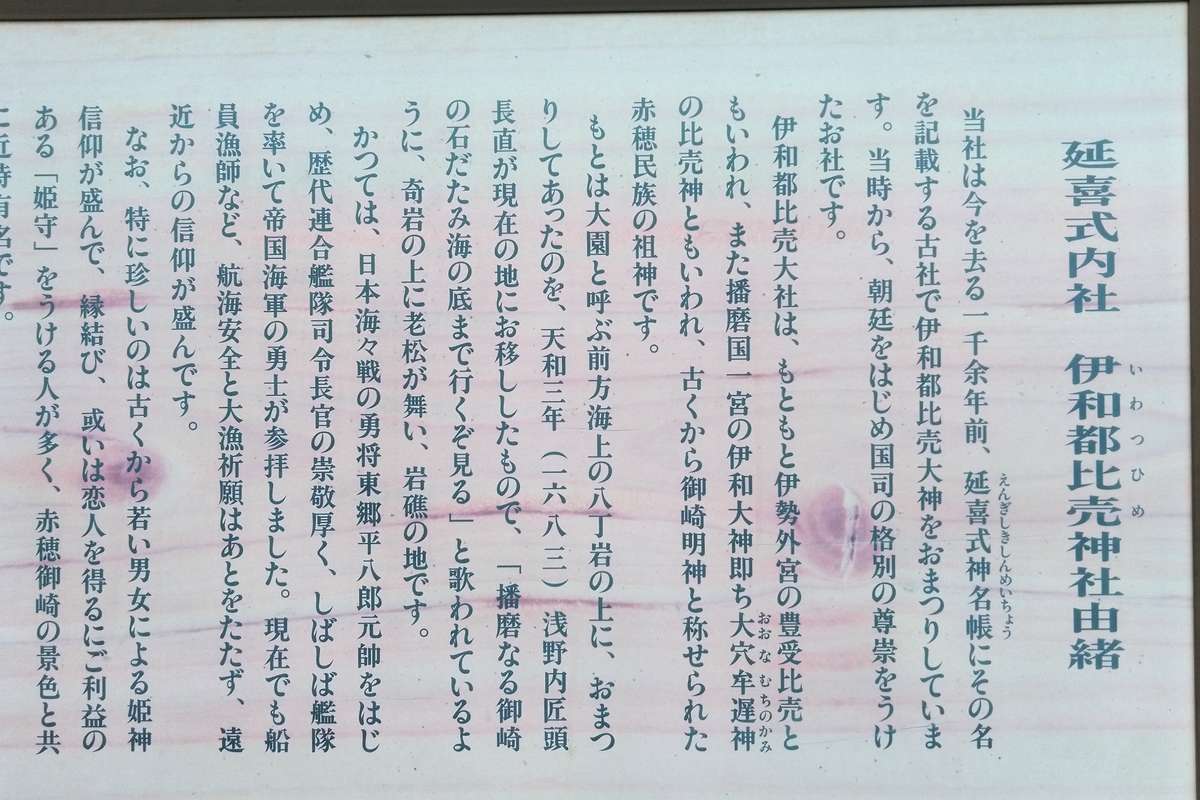 延喜式内社　伊和都比売神社由緒
いわつひめ
当社は今を去る一千余年前、延喜式神名帳にその名
えんぎしきしんめいちょう
を記載する古社で伊和都比売大神をおまつりしていま
す。当時から、朝廷をはじめ国司の格別の尊崇をうけ
たお社です。
伊和都比売大社は、もともと伊勢外宮の豊受比売と
もいわれ、また播磨国一宮の伊和大神即ち大穴牟遅神
おおなむちのかみ
の比売神ともいわれ、古くから御崎明神と称せられた
赤穂民族の祖神です。
もとは大園と呼ぶ前方海上の八丁岩の上に、おまつ
りしてあったのを、天和三年（一六八三）浅野内匠頭
長直が現在の地にお移ししたもので、「播磨なる御崎
の石だたみ海の底まで行くぞ見る」と歌われているよ
うに、奇岩の上に老松が舞い、岩礁の地です。
かつては、日本海々戦の勇将東郷平八郎元帥をはじ
め、歴代連合艦隊司令長官の崇敬厚く、しばしば艦隊
を率いて帝国海軍の勇士が参拝しました。現在でも船
員漁師など、航海安全と大漁祈願はあとをたたず、遠
近からの信仰が盛んです。
なお、特に珍しいのは古くから若い男女による姫神
信仰が盛んで、縁結び、或いは恋人を得るにご利益の
ある「姫守」をうける人が多く、赤穂御崎の景色と共
に近時有名です。